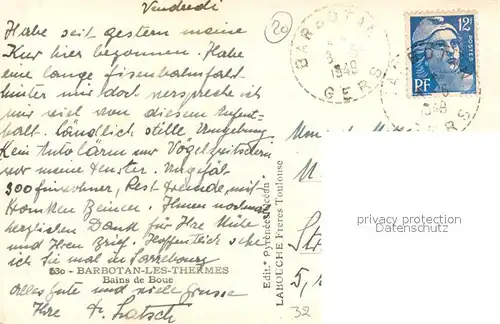 Vendredi
Habe seit gestern meine
Kur hier begonnen. Habe
eine lange Eisenbahnfahrt
hinter mir doch verspreche ich
mir viel von diesem Aufent-
halt. Ländlich stille Umgebung
Kein Autolärm nur Vögelzwitschern
vor meine Fenster. Ungefäl
300 Einwohner, Rest Fremde, mit
kranken Beinen. Ihnen nochmals
herzlichen Dank für Ihre Mühe
und Ihren Brief. Hoffentlich sehe
ich Sie mal in Sarrebourg
530 - BARBOTAN-LES-THERMES
Bains de Boue
alles Gute und viele Grüsse
Ihre
20
BARBOTAN
GERS
12F
POSTES
RF
Edit. "Pyrénées-Océan"
LABOUCHE Frères Toulouse
M
St
5,
32
privacy protection